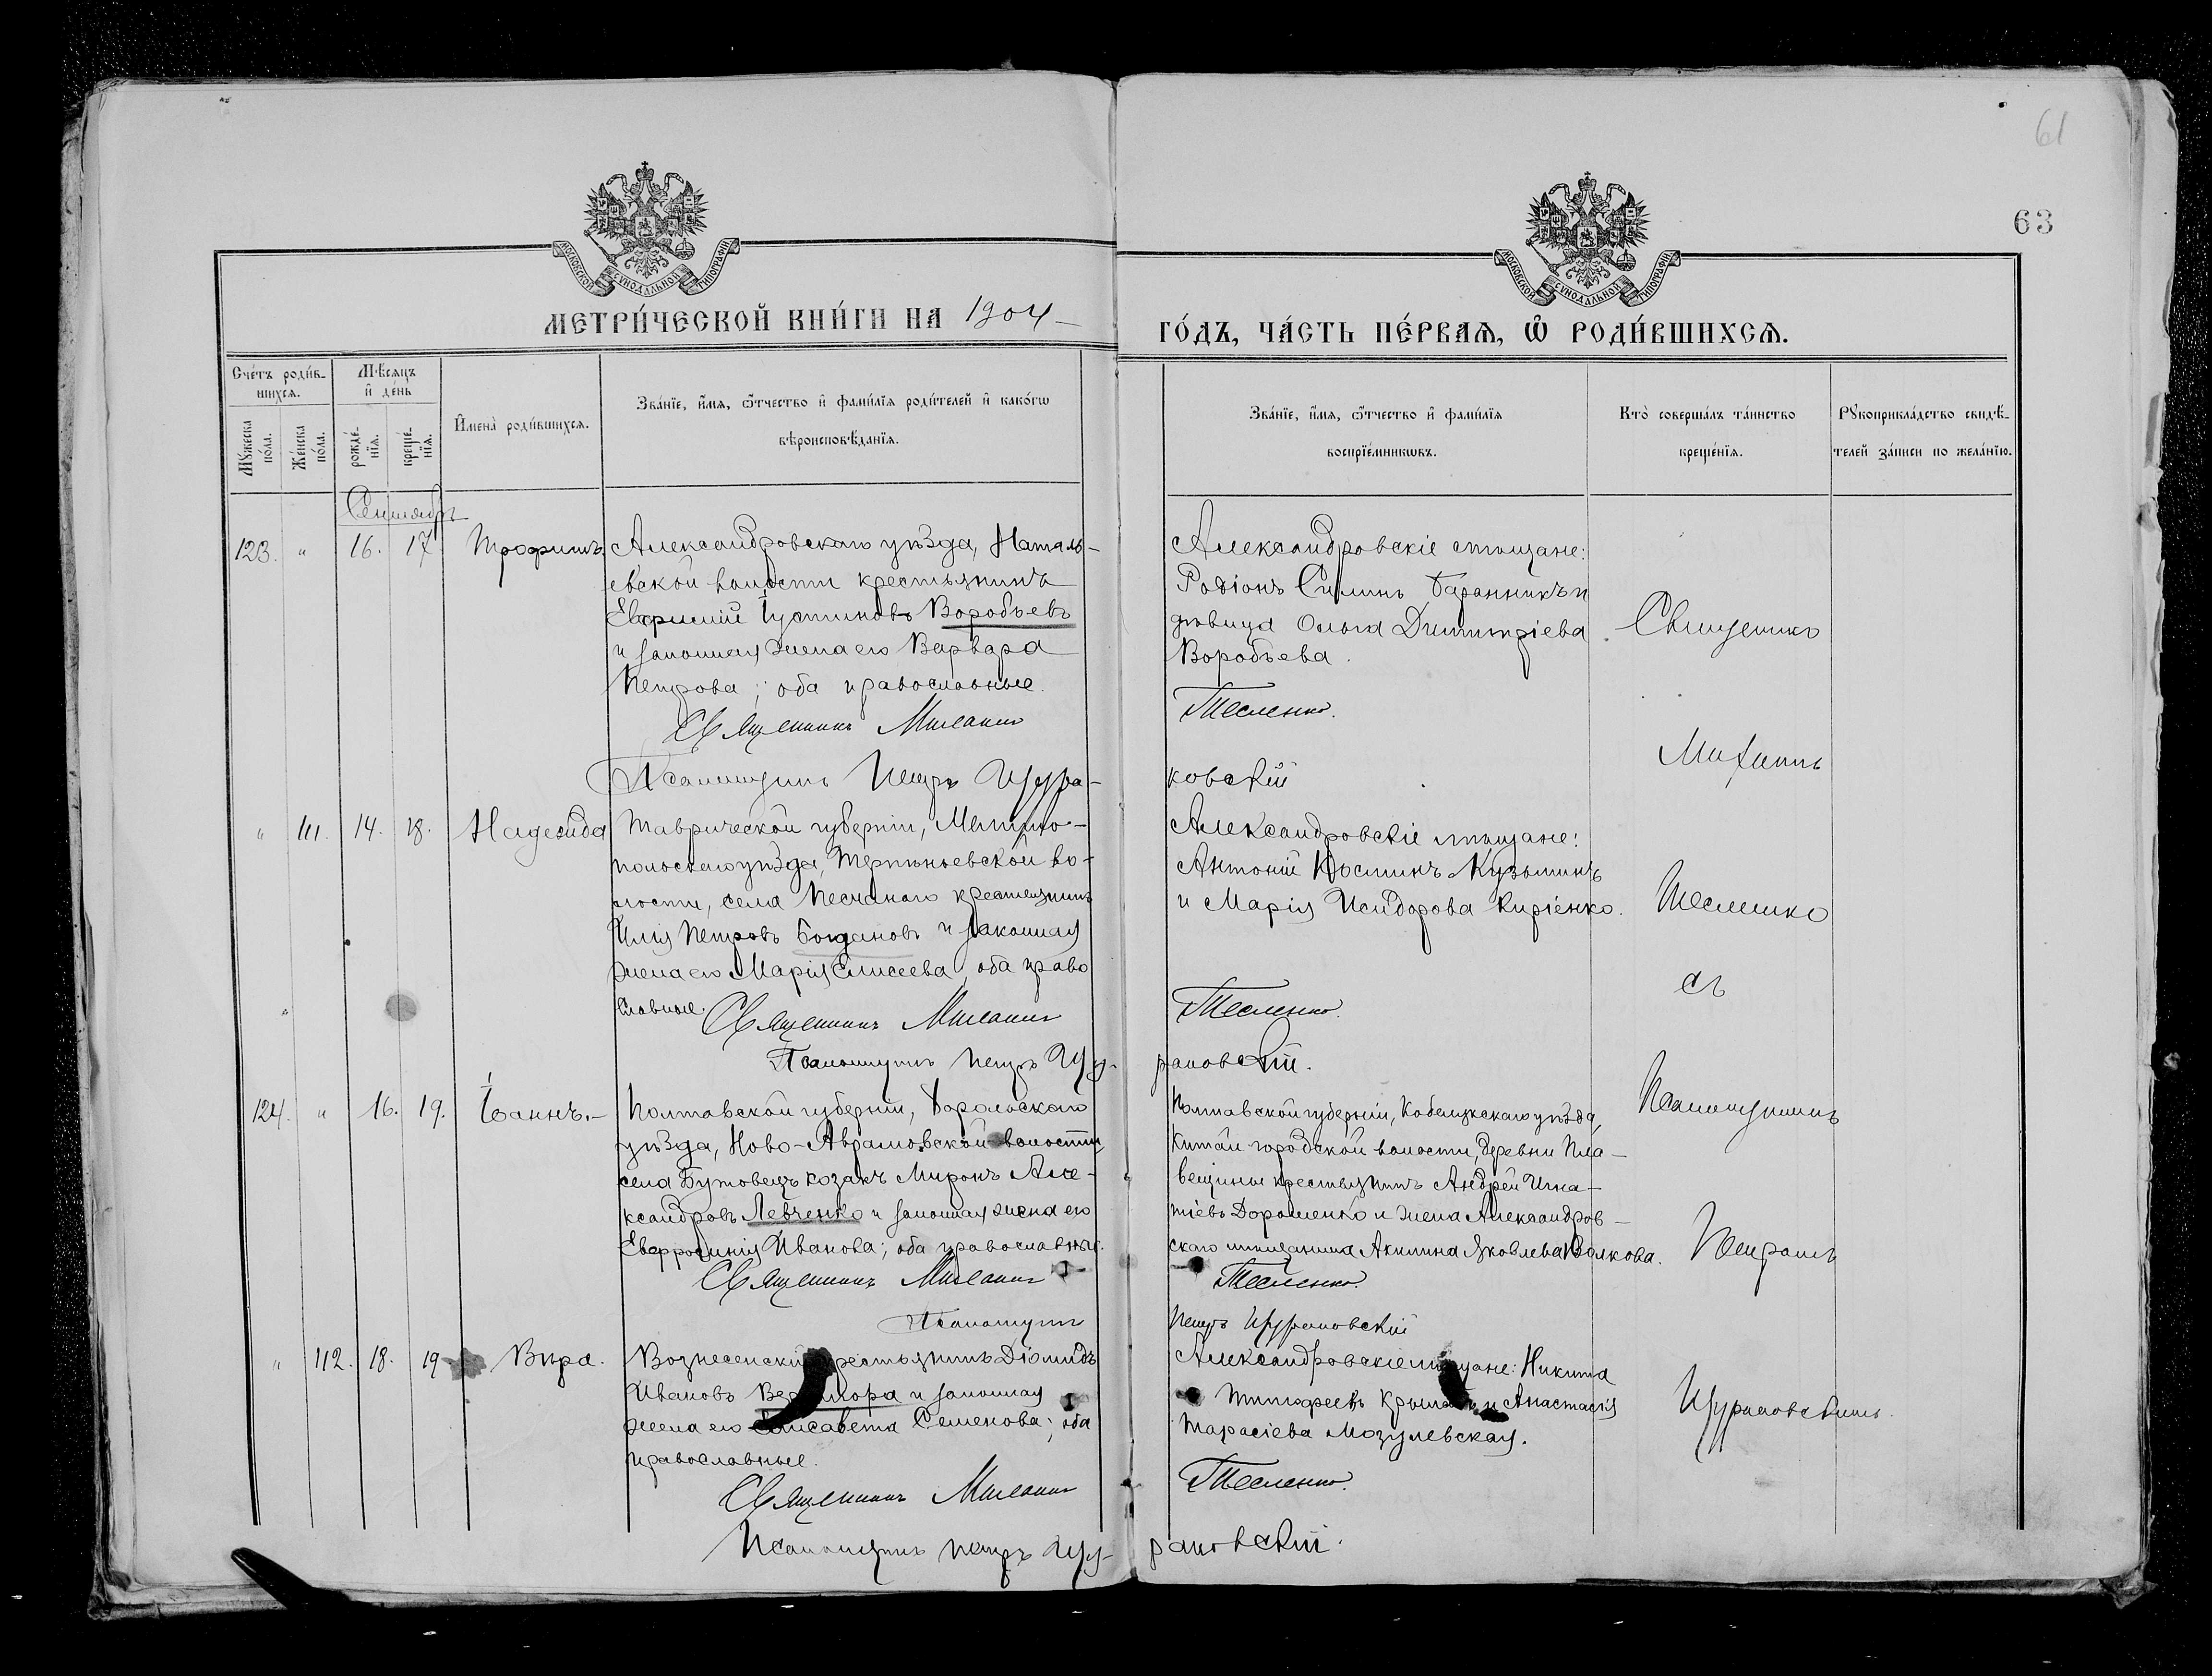 61
63
МОСКОВСКОЙ СѴНОДАЛЬНОЙ ТИПОГРАФІИ
МОСКОВСКОЙ СѴНОДАЛЬНОЙ ТИПОГРАФІИ
МЕТРИ́ЧЕСКОЙ КНИ́ГИ НА 1904
ГО́ДЪ, ЧА́СТЬ ПЕ́РВАѦ, Ѡ РОДИ́ВШИХСѦ.
Сче́тъ роди́в-
шихсѧ.
Мꙋ́жеска
по́ла.
Же́нска
по́ла.
Мѣ́сѧцъ
и҆ де́нь
рожде́-
нїѧ.
креще́-
нїѧ.
И҆мена̀ роди́вшихсѧ.
Зва́нїе, и҆́мѧ, ѻ҆́тчество и҆ фами́лїѧ роди́телей и҆ како́гѡ
вѣроисповѣ́данїѧ.
Зва́нїе, и҆́мѧ, ѻ҆́тчество и҆ фами́лїѧ
воспрїе́мникѡвъ.
Кто̀ соверша́лъ та́инство
креще́нїѧ.
Рꙋкоприкла́дство свидѣ́-
телей за́писи по жела́нїю.
Сентябрь
123. " 16. 17 Трофимъ.
Александровскаго уѣзда, Наталь-
евской волости крестьянинъ
Евфимій Іустиновъ Воробьевъ
и законная жена его Варвара
Петрова; оба православные.
Священникъ Михаилъ
Псаломщикъ Петръ Цура-
Александровскіе мѣщане:
Родіонъ Силинъ Баранникъ и
дѣвица Ольга Димитріева
Воробьева.
Тесленко.
ковскій
" 111. 14. 18. Надежда
Таврической губерніи, Мелито-
польскаго уѣзда, Терпѣньевской во-
лости, села Песчанаго крестьянинъ
Илія Петровъ Богдановъ и законная
жена его Марія Елисеева, оба право
славные.
Священникъ Михаилъ
Псаломщикъ Петръ Цу-
Александровскіе мѣщане:
Антоній Косминъ Кузьминъ
и Марія Исидорова Киріенко.
Тесленко.
раковскій.
124. " 16. 19. Іоаннъ.
Полтавской губерніи, Хорольскаго
уѣзда, Ново-Аврамовской волости
села Бутовецъ козакъ Миронъ Але-
ксандровъ Левченко и законная жена его
Евфросинія Иванова; оба православные.
Священникъ Михаилъ
Псаломщикъ
Полтавской губерніи, Кобелякскаго уѣзда,
Китай-городской волости, деревни Пла-
вещины крестьянинъ Андрей Игна-
тіевъ Дорошенко и жена Александров-
скаго мѣщанина Акилина Яковлева Волкова.
Тесленко.
Петръ Цураковскій
" 112. 18. 19 Вѣра.
Вознесенскій крестьянинъ Діомидъ
Ивановъ и законная
жена его Елисавета Семенова; оба
православные.
Священникъ Михаилъ
Псаломщикъ Петръ Цу-
Александровскіе мѣщане: Никита
Тимофеевъ и Анастасія
Тарасіева Мозулевская.
Тесленко.
раковскій.
Священникъ
Михаилъ
Тесленко
съ
Псаломщикомъ
Петромъ
Цураковскимъ.